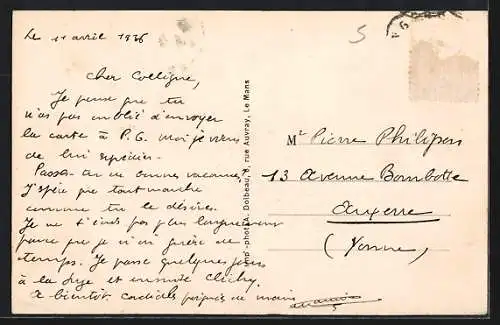 Le 11 avril 1936
Cher Collègue,
Je pense que tu
n'as pas oublié d'envoyer
la carte à P. G. Moi je viens
de lui expédier.
Passes-tu de bonnes vacances,
J'espère que tout marche
comme tu le désires.
Je ne t'écris pas plus longuement
parce que je n'ai guère de
temps. Je passe quelques jours
à la et ensuite Clichy.
A bientôt. Cordiale poignée de main
Imp-phot. A. Dolbeau, 8, rue Auvray, Le Mans
5
Mr Pierre Philipson
13 Avenue Bombotte
Auxerre
(Yonne)